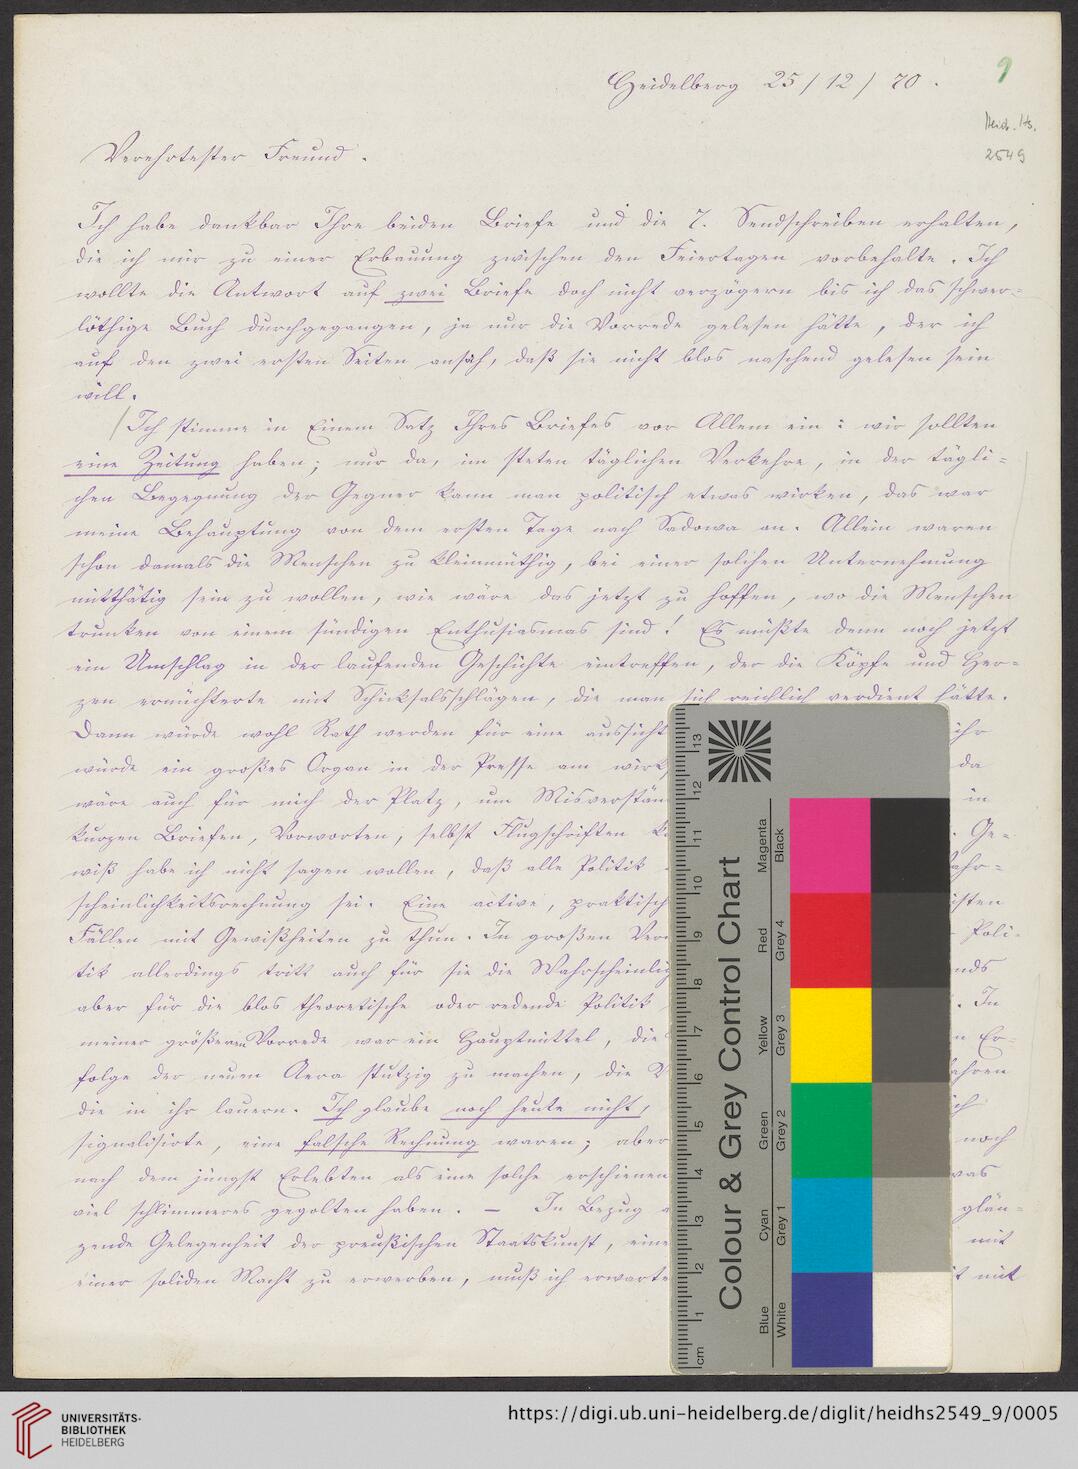 9
Heidelberg 25/12/70.
Heid. Hs.
2549
Verehrtester Freund.
Ich habe dankbar Ihre beiden Briefe und die 7. Sendschreiben erhalten,
die ich mir zu einer Erbauung zwischen den Feiertagen vorbehalte. Ich
wollte die Antwort auf zwei Briefe doch nicht verzögern bis ich das schwer-
löthige Buch durchgegangen, ja nur die Vorrede gelesen hätte, der ich
auf den zwei ersten Seiten ansah, daß sie nicht blos naschend gelesen sein
will.
Ich stimme in Einem Satz Ihres Briefes vor Allem ein: wir sollten
eine Zeitung haben; nur da, im steten täglichen Verkehre, in der tägli-
chen Begegnung der Gegner kann man politisch etwas wirken, das war
meine Behauptung von dem ersten Tage nach Sadowa an. Allein waren
schon damals die Menschen zu kleinmüthig, bei einer solchen Unternehmung
mitthätig sein zu wollen, wie wäre das jetzt zu hoffen, wo die Menschen
trunken von einem sündigen Enthusiasmas sind! Es müßte denn noch jetzt
ein Umschlag in der laufenden Geschichte eintreffen, der die Köpfe und Her-
zen ernüchterte mit Schicksalsschlägen, die man sich reichlich verdient hätte.
Dann würde wohl Rath werden für eine aussicht ihr
würde ein großes Organ in der Presse am wirk da
wäre auch für mich der Platz, um Misverstän in
kurzen Briefen, Vorworten, selbst Flugschriften k . Ge-
wiß habe ich nicht sagen wollen, daß alle Politik ahr-
scheinlichkeitsrechnung sei. Eine active, praktisch isten
Fällen mit Gewißheiten zu thun. In großen Ver - Poli-
tik allerdings tritt auch für sie die Wahrscheinlich nds
aber für die blos theoretische oder redende Politik . In
meiner größeren Vorrede war ein Hauptmittel, die n Er-
folge der neuen Aera stutzig zu machen, die ahren
die in ihr lauern. Ich glaube noch heute nicht, ich
signalisirte, eine falsche Rechnung waren; aber noch
nach dem jüngst Erlebten als eine solche erschienen was
viel schlimmeres gegolten haben. – In Bezug glän-
zende Gelegenheit der preußischen Staatskunst, eine mit
einer soliden Macht zu erwerben, muß ich erwarte t mit
Colour & Grey Control Chart
Blue Cyan Green Yellow Red Magenta
White Grey 1 Grey 2 Grey 3 Grey 4 Black
cm 1 2 3 4 5 6 7 8 9 10 11 12 13
UNIVERSITÄTS-
BIBLIOTHEK
HEIDELBERG
https://digi.ub.uni-heidelberg.de/diglit/heidhs2549_9/0005